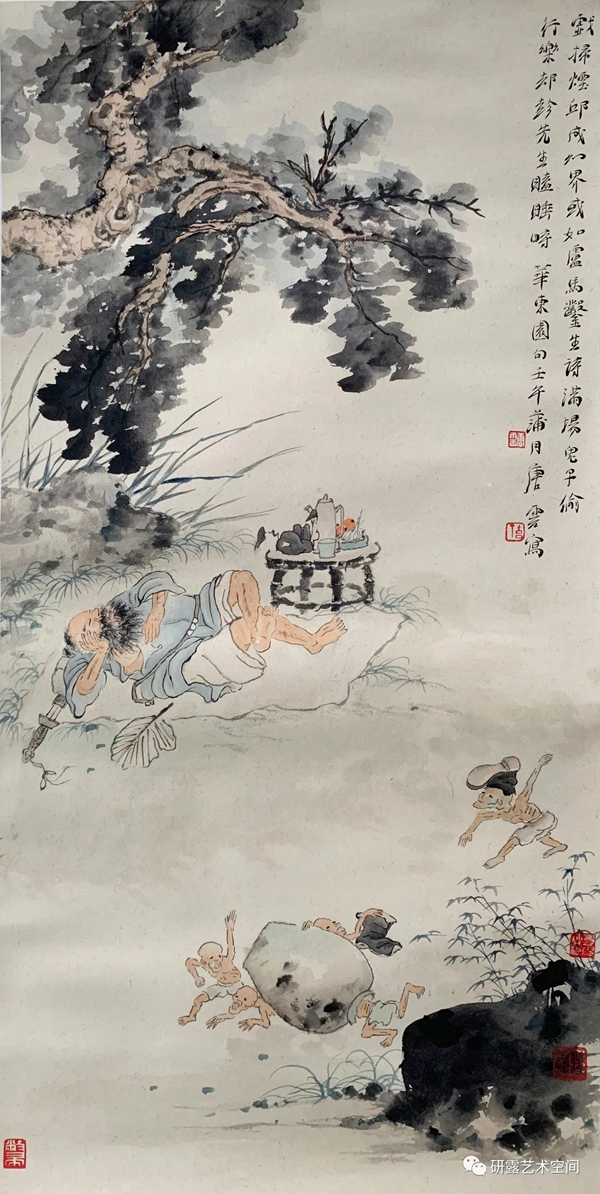 戲掃煙邱成幻界或如廬馬鑿生詩滿場鬼子偷
行樂却趁先生瞌睡時 華東園句壬午蒲月唐雲寫
研露艺术空间